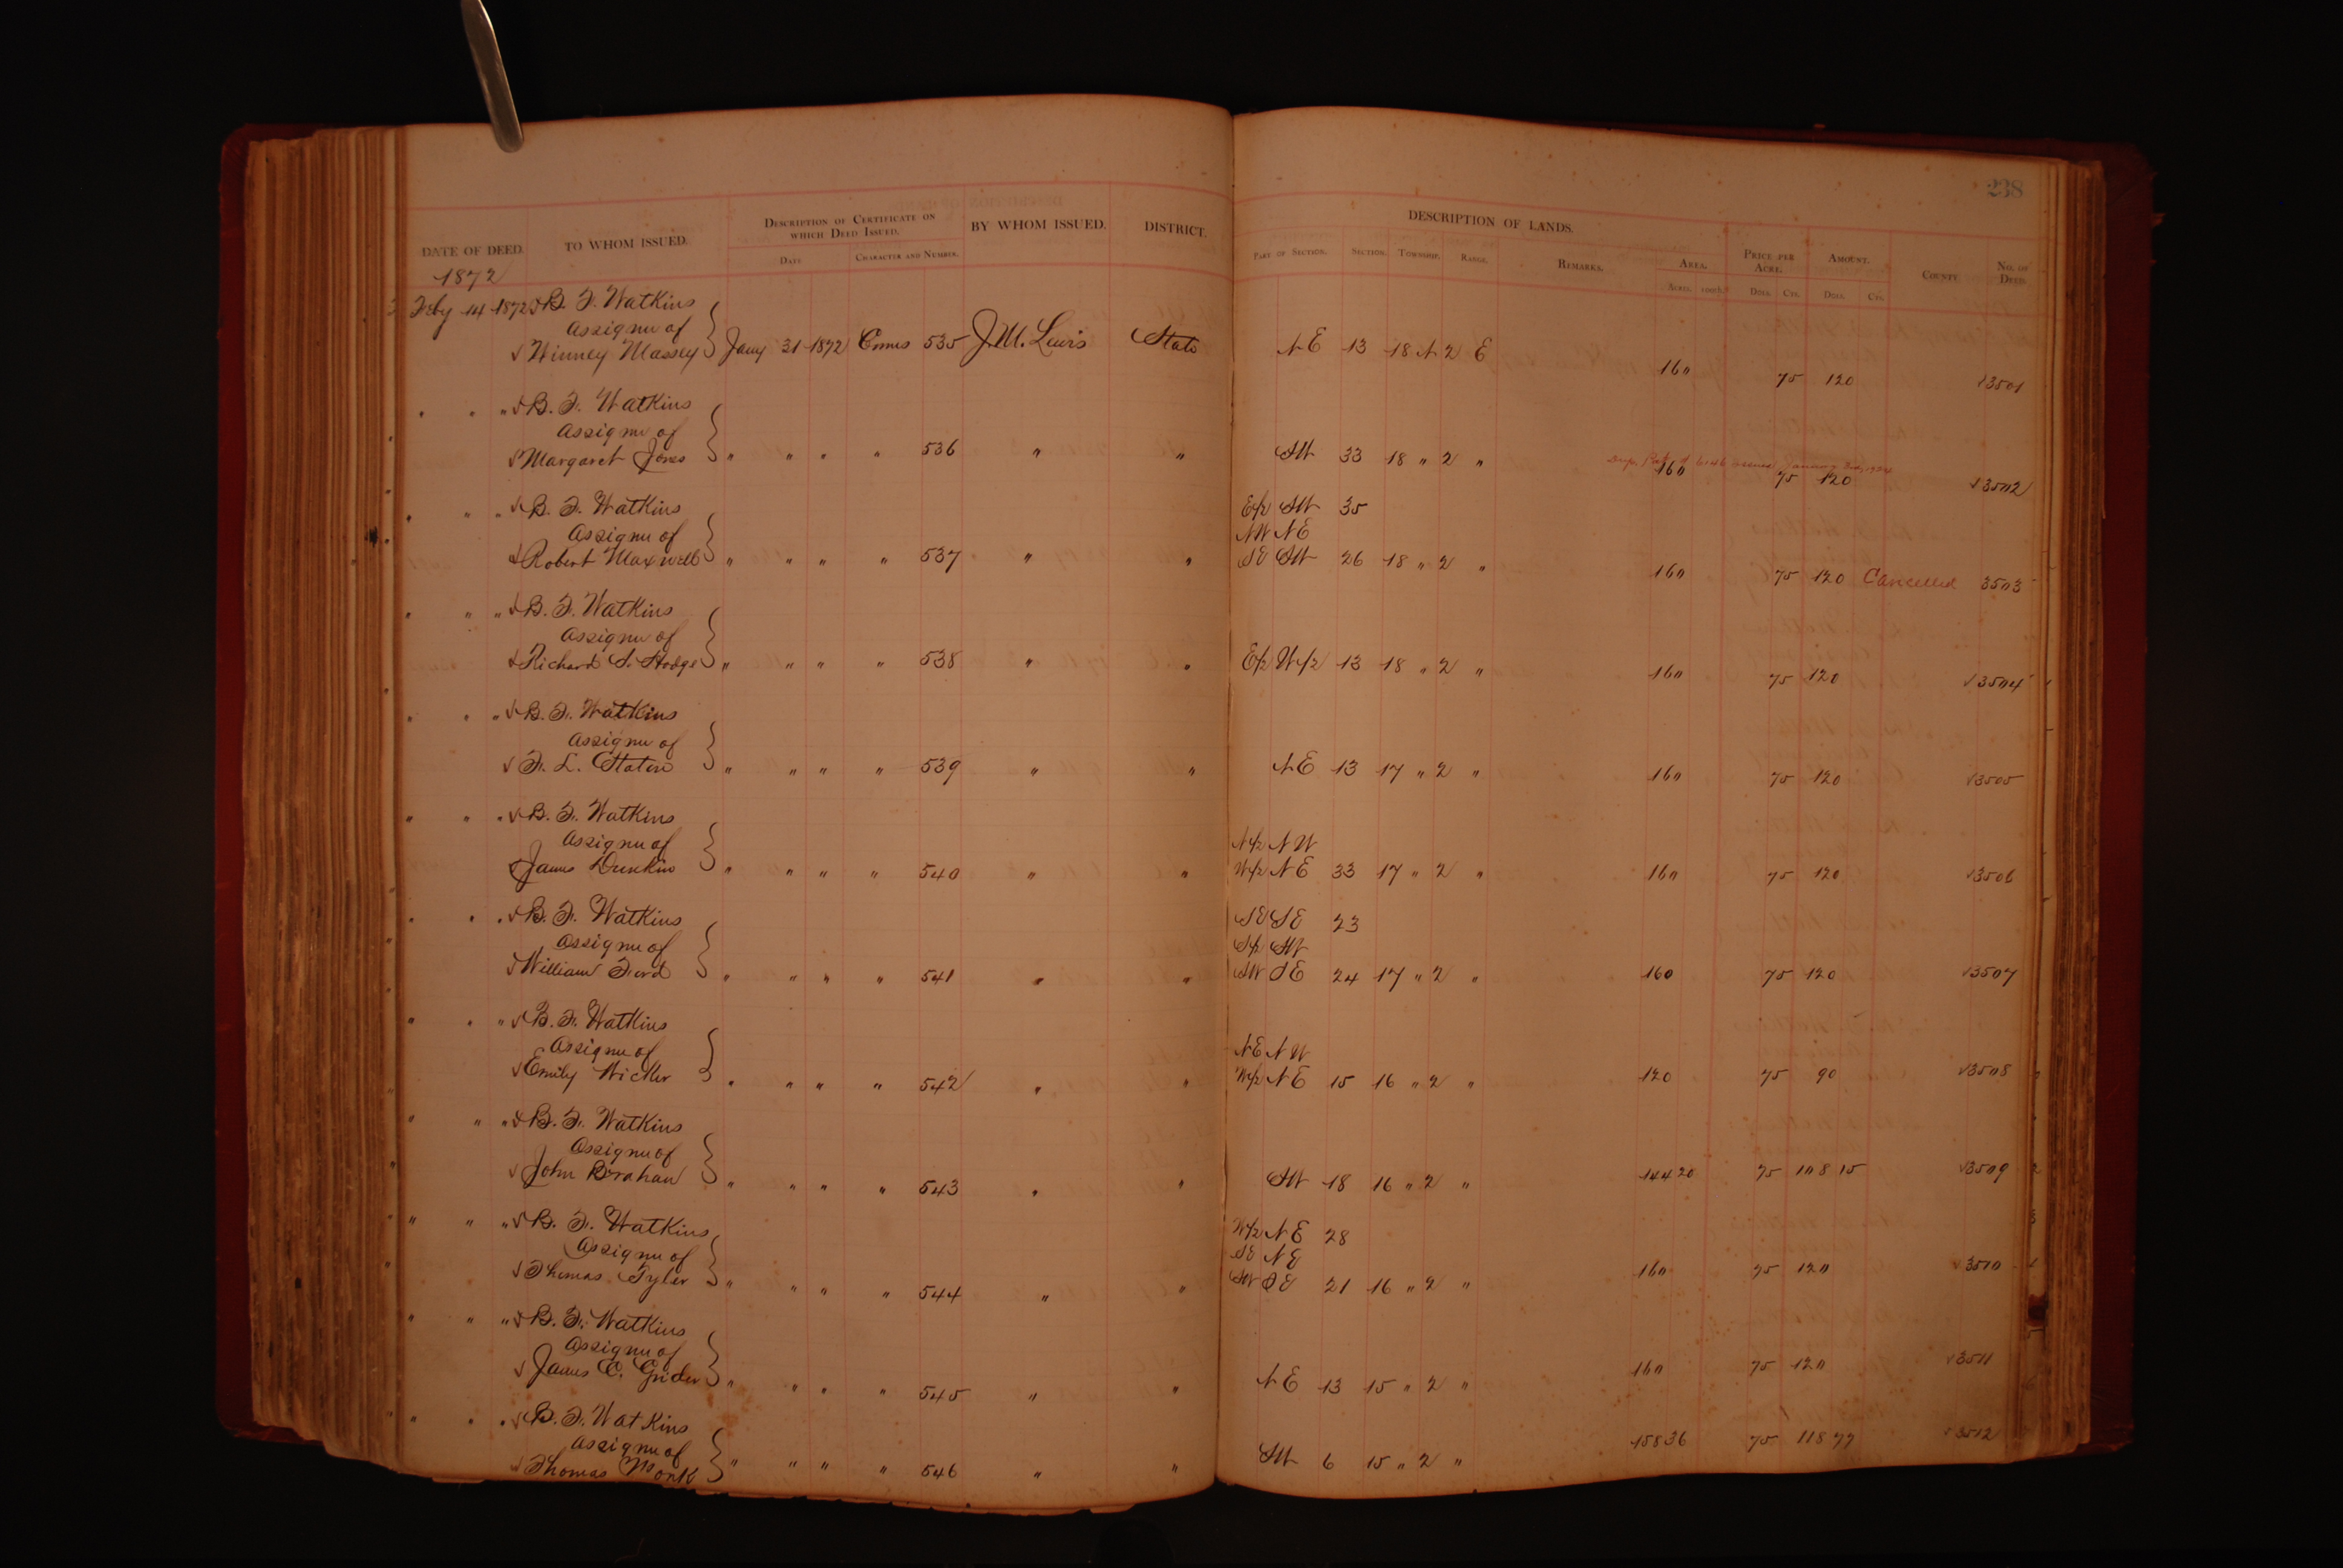 238
DESCRIPTION OF LANDS.
DATE OF DEED. TO WHOM ISSUED. DESCRIPTION OF CERTIFICATE ON WHICH DEED ISSUED. BY WHOM ISSUED. DISTRICT. PART OF SECTION. SECTION. TOWNSHIP. RANGE. REMARKS. AREA. PRICE PER ACRE. AMOUNT. COUNTY NO. OF DEED.
DATE CHARACTER AND NUMBER. ACRES. DOLLS. CTS. DOLLS. CTS.
1872
Feby 14 1872 B. F. Watkins
Assignee of
Winney Massey } Jany 31 1872 535 J. M. Lewis State NE 13 18 N 2 E 160 75 120 3501
" " " B. F. Watkins
Assignee of
Margaret Jones } " " " " 536 " " SW 33 18 " 2 " 160 75 120 3502
" " " B. F. Watkins E/2 SW 35
Assignee of NW NE
Robert Maxwell } " " " " 537 " " SE SW 26 18 " 2 " 160 75 120 Cancelled 3503
" " " B. F. Watkins
Assignee of
Richard S. Hodge } " " " " 538 " " E/2 W/2 13 18 " 2 " 160 75 120 3504
" " " B. F. Watkins
Assignee of
F. L. Staton } " " " " 539 " " NE 13 17 " 2 " 160 75 120 3505
" " " B. F. Watkins
Assignee of N/2 NW
James Dunkin } " " " " 540 " " W/2 NE 33 17 " 2 " 160 75 120 3506
" " " B. F. Watkins SE SE 23
Assignee of S/2 SW
William Ford } " " " " 541 " " SW SE 24 17 " 2 " 160 75 120 3507
" " " B. F. Watkins
Assignee of NE NW
Emily } " " " " 542 " " W/2 NE 15 16 " 2 " 120 75 90 3508
" " " B. F. Watkins
Assignee of
John Brahan } " " " " 543 " " SW 18 16 " 2 " 144 20 75 108 15 3509
" " " B. F. Watkins W/2 NE 28
Assignee of SE NE
Thomas Tyler } " " " " 544 " " SW SE 21 16 " 2 " 160 75 120 3510
" " " B. F. Watkins
Assignee of
James E. Grider } " " " " 545 " " NE 13 15 " 2 " 160 75 120 3511
" " " B. F. Watkins
Assignee of
Thomas Monk } " " " " 546 " " SW 6 15 " 2 " 158 36 75 118 77 3512